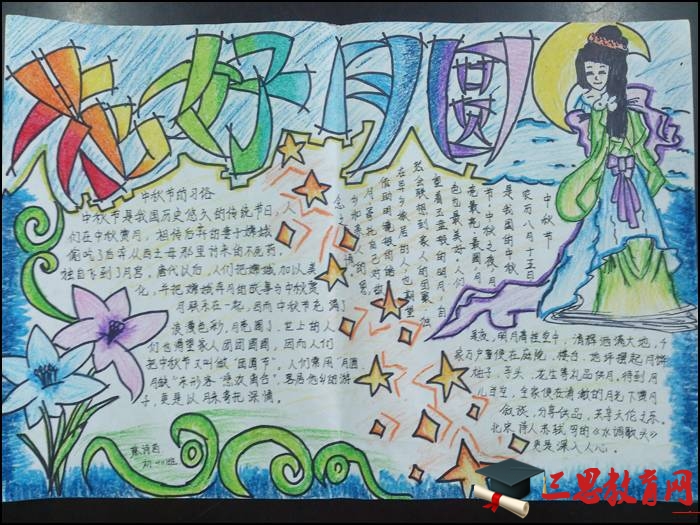 花好月圆
中秋节的习俗
中秋节是我国历史悠久的传统节日,人
们在中秋赏月,祖传后羿的妻子嫦娥
偷吃了后羿从西王母那里讨来的不死药,
独自飞到了月宫。唐代以后,人们把嫦娥加以美
化,并把嫦娥奔月的故事与中秋赏
月联系在一起,因而中秋节充满了
浪漫色彩,月亮圆了,世上的人
们也渴望家人团团圆圆,因而人们
把中秋节又叫做“团圆节”。人们常用“月圆
月缺”来形容“悲欢离合”,客居他乡的游
子,更是以月来寄托深情。
中秋节
农历八月十五日
是我国的中秋
节。中秋之夜,月
亮最亮、最圆,月
色也最美好。人们
望着玉盘般的明月,自
然会联想到家人的团聚。独
在异乡旅居的人,也期望
借助明镜般的皓
月寄托自己对故
乡和亲
是夜,明月高挂空中,清辉洒满大地,千
家万户量便在庭院、楼台,地坪摆起月饼
柚子、芋头、花生等礼品供月,待到月
儿当空,全家便在清澈的月光下赏月
叙旅,分享供品,共享天伦之乐。
北宋诗人苏轼写的《水调歌头》
更是深入人心。
三思教育网